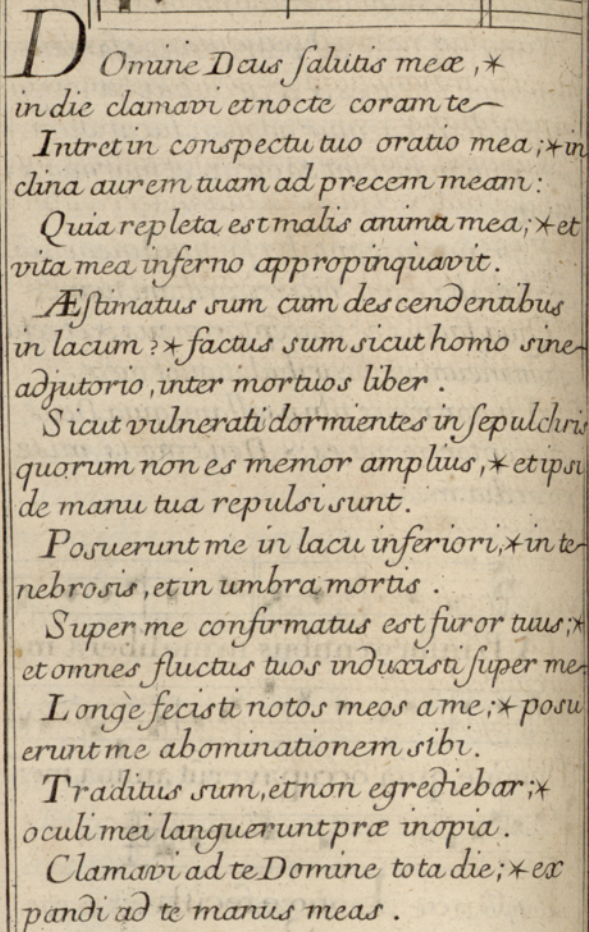 Domine Deus salutis meæ, *
in die clamavi et nocte coram te
Intret in conspectu tuo oratio mea; * in
clina aurem tuam ad precem meam:
Quia repleta est malis anima mea; * et
vita mea inferno appropinquavit.
Æstimatus sum cum descendentibus
in lacum ? * factus sum sicut homo sine
adjutorio, inter mortuos liber.
Sicut vulnerati dormientes in sepulchris
quorum non es memor amplius, * et ipsi
de manu tua repulsi sunt.
Posuerunt me in lacu inferiori, * in te
nebrosis, et in umbra mortis.
Super me confirmatus est furor tuus; *
et omnes fluctus tuos induxisti super me
Longè fecisti notos meos a me; * posu
erunt me abominationem sibi.
Traditus sum, et non egrediebar; *
oculi mei languerunt præ inopia.
Clamavi ad te Domine tota die; * ex
pandi ad te manus meas.